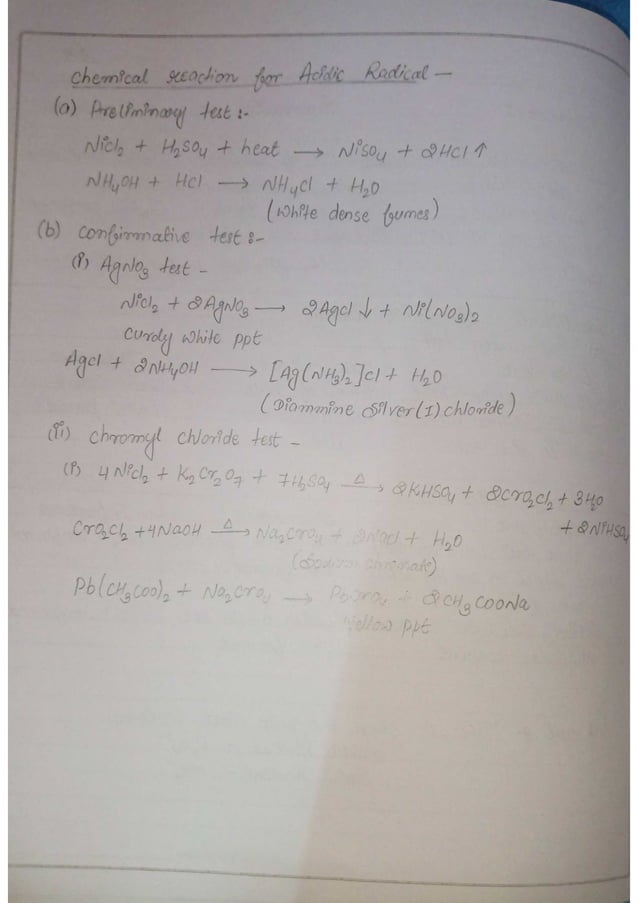 Chemical reaction for Acidic Radical —
(a) Preliminary test :-
NiCl₂ + H₂SO₄ + heat ⟶ NiSO₄ + 2HCl ↑
NH₄OH + HCl ⟶ NH₄Cl + H₂O
(White dense fumes)
(b) Confirmative test :-
(i) AgNO₃ test -
NiCl₂ + 2AgNO₃ ⟶ 2AgCl ↓ + Ni(NO₃)₂
Curdy white ppt
AgCl + 2NH₄OH ⟶ [Ag(NH₃)₂]Cl + H₂O
(Diammine Silver(I) chloride)
(ii) Chromyl Chloride test -
(i) 4NiCl₂ + K₂Cr₂O₇ + 7H₂SO₄ —Δ→ 2KHSO₄ + 2CrO₂Cl₂ + 3H₂O
+ 2NiHSO₄
CrO₂Cl₂ + 4NaOH —Δ→ Na₂CrO₄ + 2NaCl + H₂O
(Sodium chromate)
Pb(CH₃COO)₂ + Na₂CrO₄ ⟶ PbCrO₄ + 2CH₃COONa
Yellow ppt